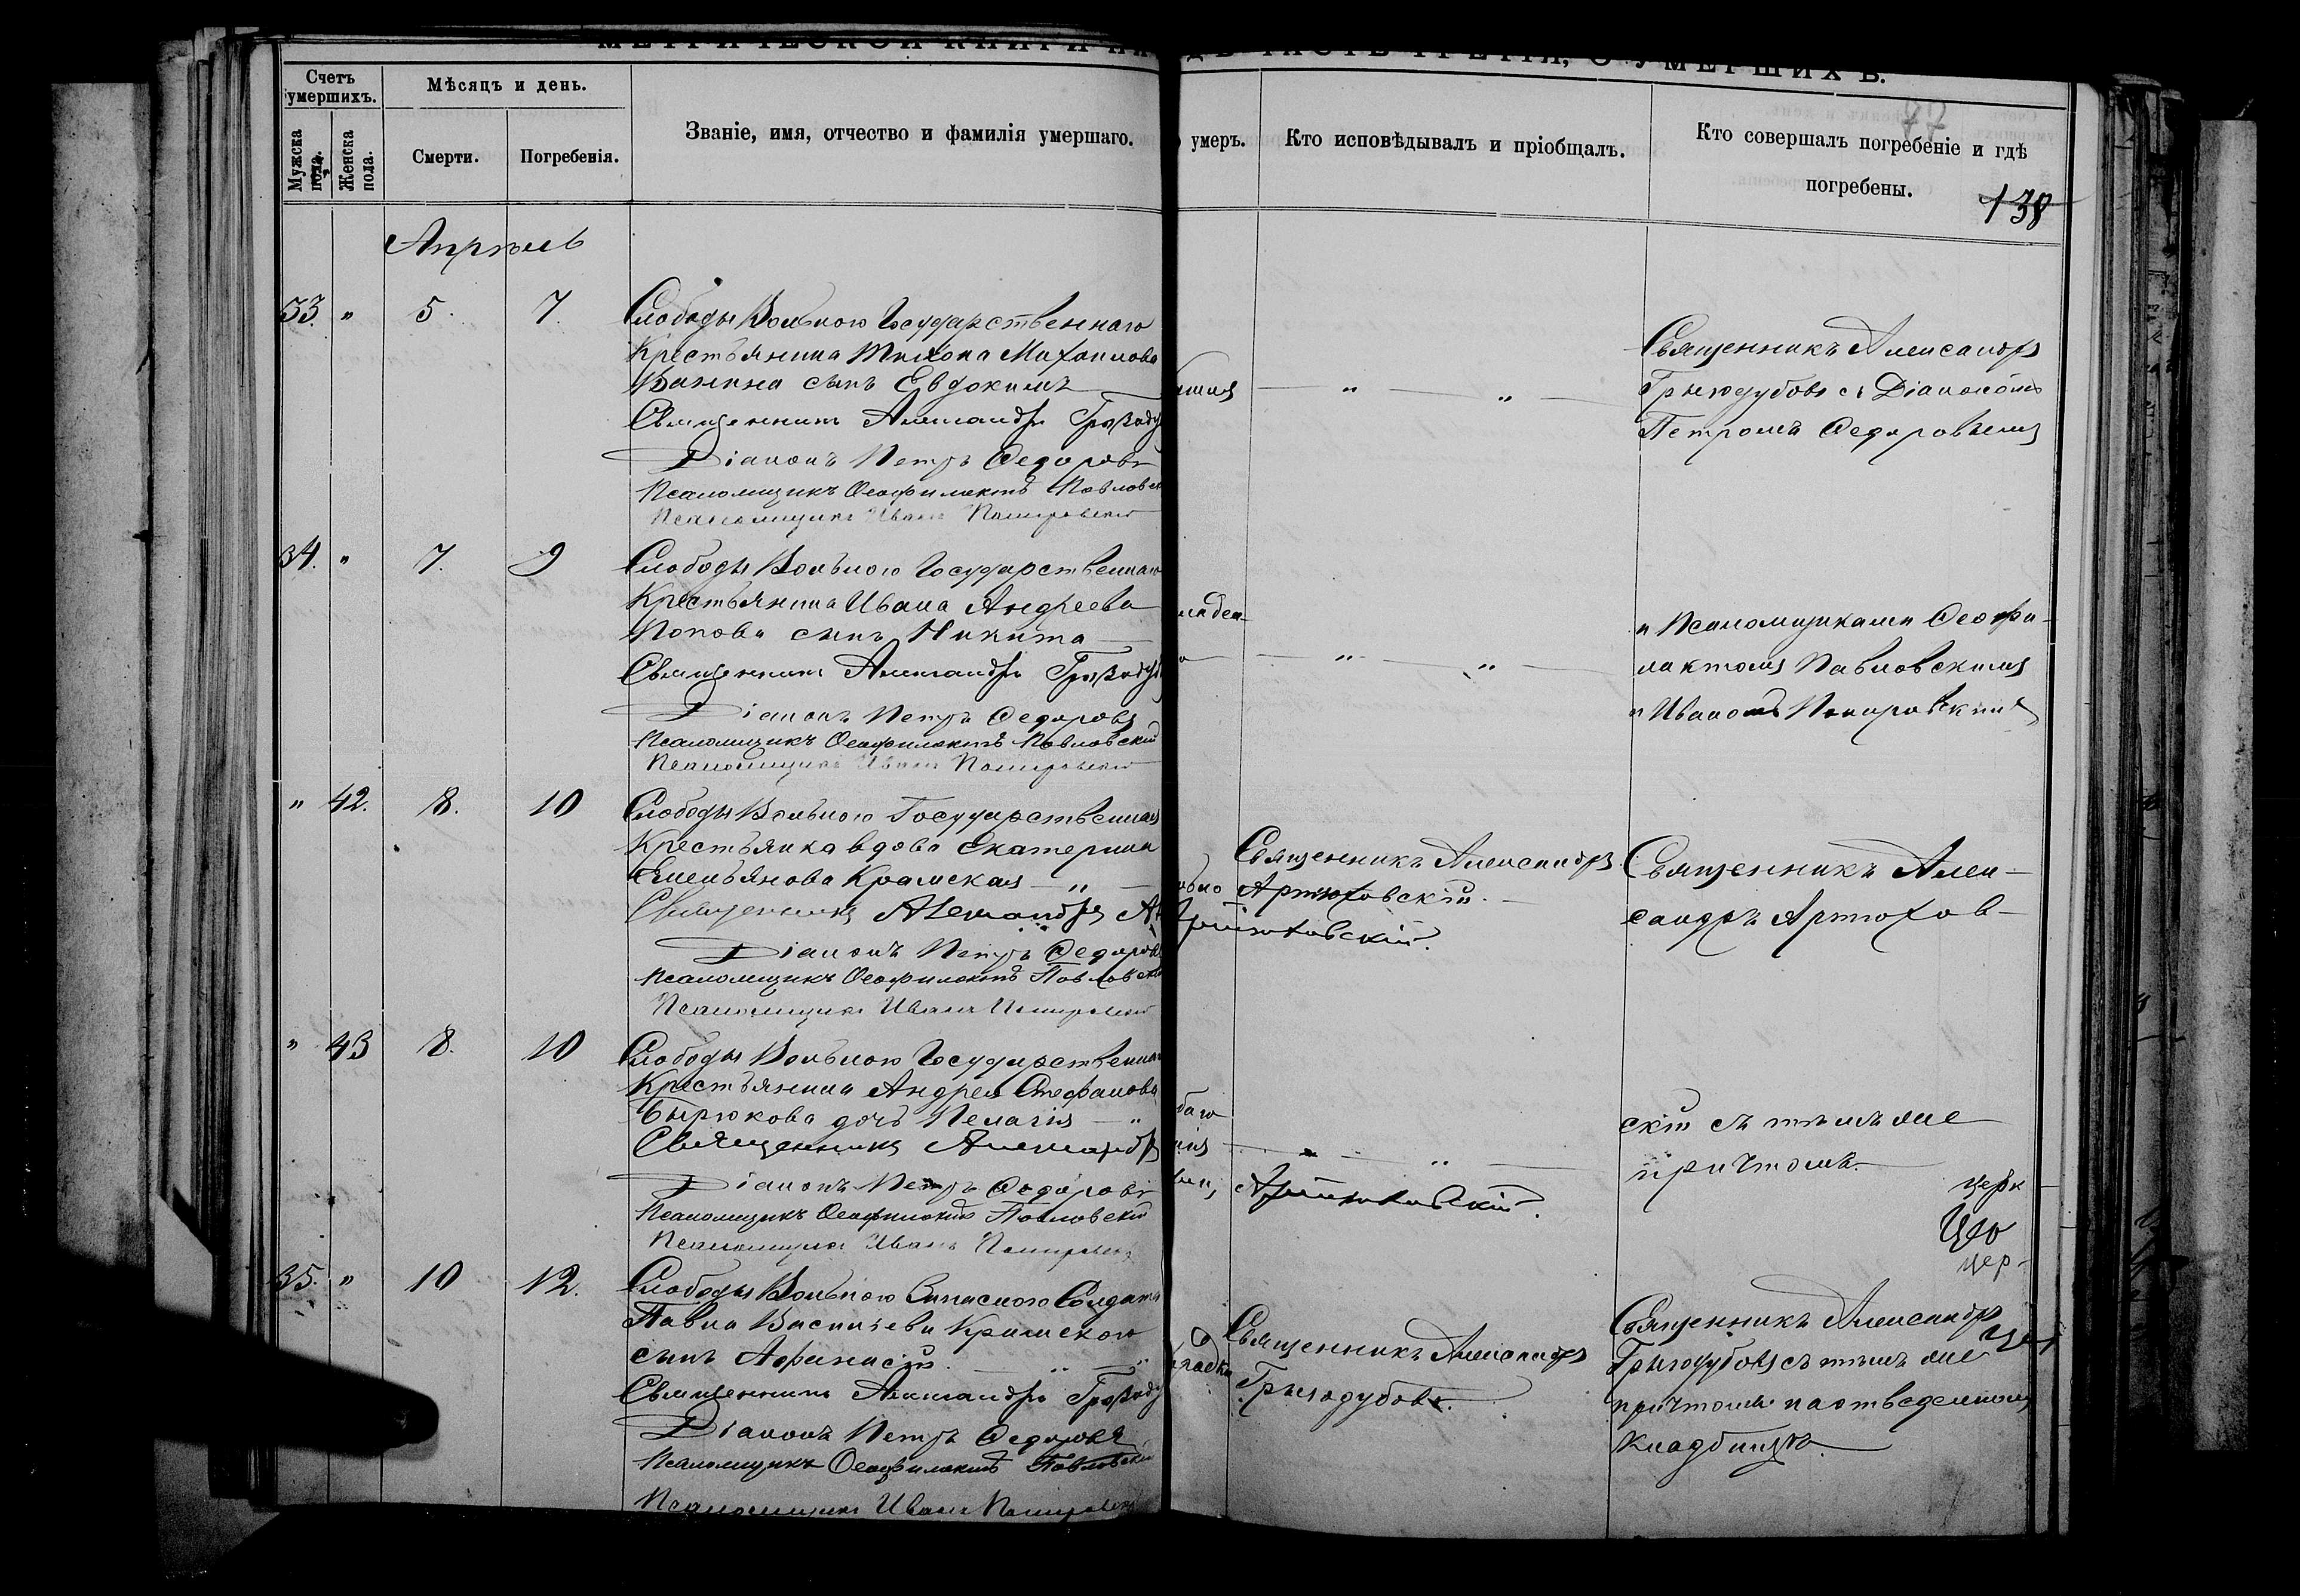 МЕТРИЧЕСКОЙ КНИГИ НА
ЧАСТЬ ТРЕТІЯ, О УМЕРШИХЪ.
Счетъ умершихъ.
Мѣсяцъ и день.
Званіе, имя, отчество и фамилія умершаго.
Мужска пола.
Женска пола.
Смерти.
Погребенія.
умеръ.
Кто исповѣдывалъ и пріобщалъ.
Кто совершалъ погребеніе и гдѣ
погребены.
77
138
Апрѣль
33. " 5. 7.
Слободы Вольного Государственнаго
Крестьянина Тихона Михаилова
сынъ Евдокимъ
Священникъ Александръ
Діаконъ Петръ Федоровъ
Псаломщикъ Феофилактъ Павловск
Псаломщикъ Иванъ
" "
Священникъ Александръ
Грызодубовъ съ Діакономъ
Петромъ Федоровымъ
34. " 7. 9
Слободы Вольного Государственнаго
Крестьянина Ивана Андреева
Попова сынъ Никита
Священникъ Александръ
Діаконъ Петръ Федоровъ
Псаломщикъ Феофилактъ Павловскій
Псаломщикъ Иванъ
" "
и Псаломщиками Феофи-
лактомъ Павловскимъ
и Иваномъ
" 42. 8. 10
Слободы Вольного Государственная
Крестьянка вдова Екатерина
Емельянова Крамская "
Священникъ Александръ
Артюховскій.
Діаконъ Петръ Федоровъ
Псаломщикъ Феофилактъ Павловскій
Псаломщикъ Иванъ
Священникъ Александръ
Артюховскій.
Священникъ Алек-
сандръ Артюхов-
" 43 8. 10
Слободы Вольного Государственнаго
Крестьянина Андрея Стефанова
Бырюкова дочь Пелагія "
Священникъ Александръ
Артюховскій.
Діаконъ Петръ Федоровъ
Псаломщикъ Феофилактъ Павловскій
Псаломщикъ Иванъ
" "
скій съ тѣмъ же
причтомъ.
церк
Цер
цер-
35. " 10 12.
Слободы Вольного Запасного Солдата
Павла Васильева Крамского
сынъ Афанасій. " "
Священникъ Александръ
Діаконъ Петръ Федоровъ
Псаломщикъ Феофилактъ Павловскій
Псаломщикъ Иванъ
Священникъ Александръ
Грызодубовъ.
Священникъ Александръ
Грызодубовъ съ тѣмъ же
причтомъ на отведенномъ
кладбищѣ.